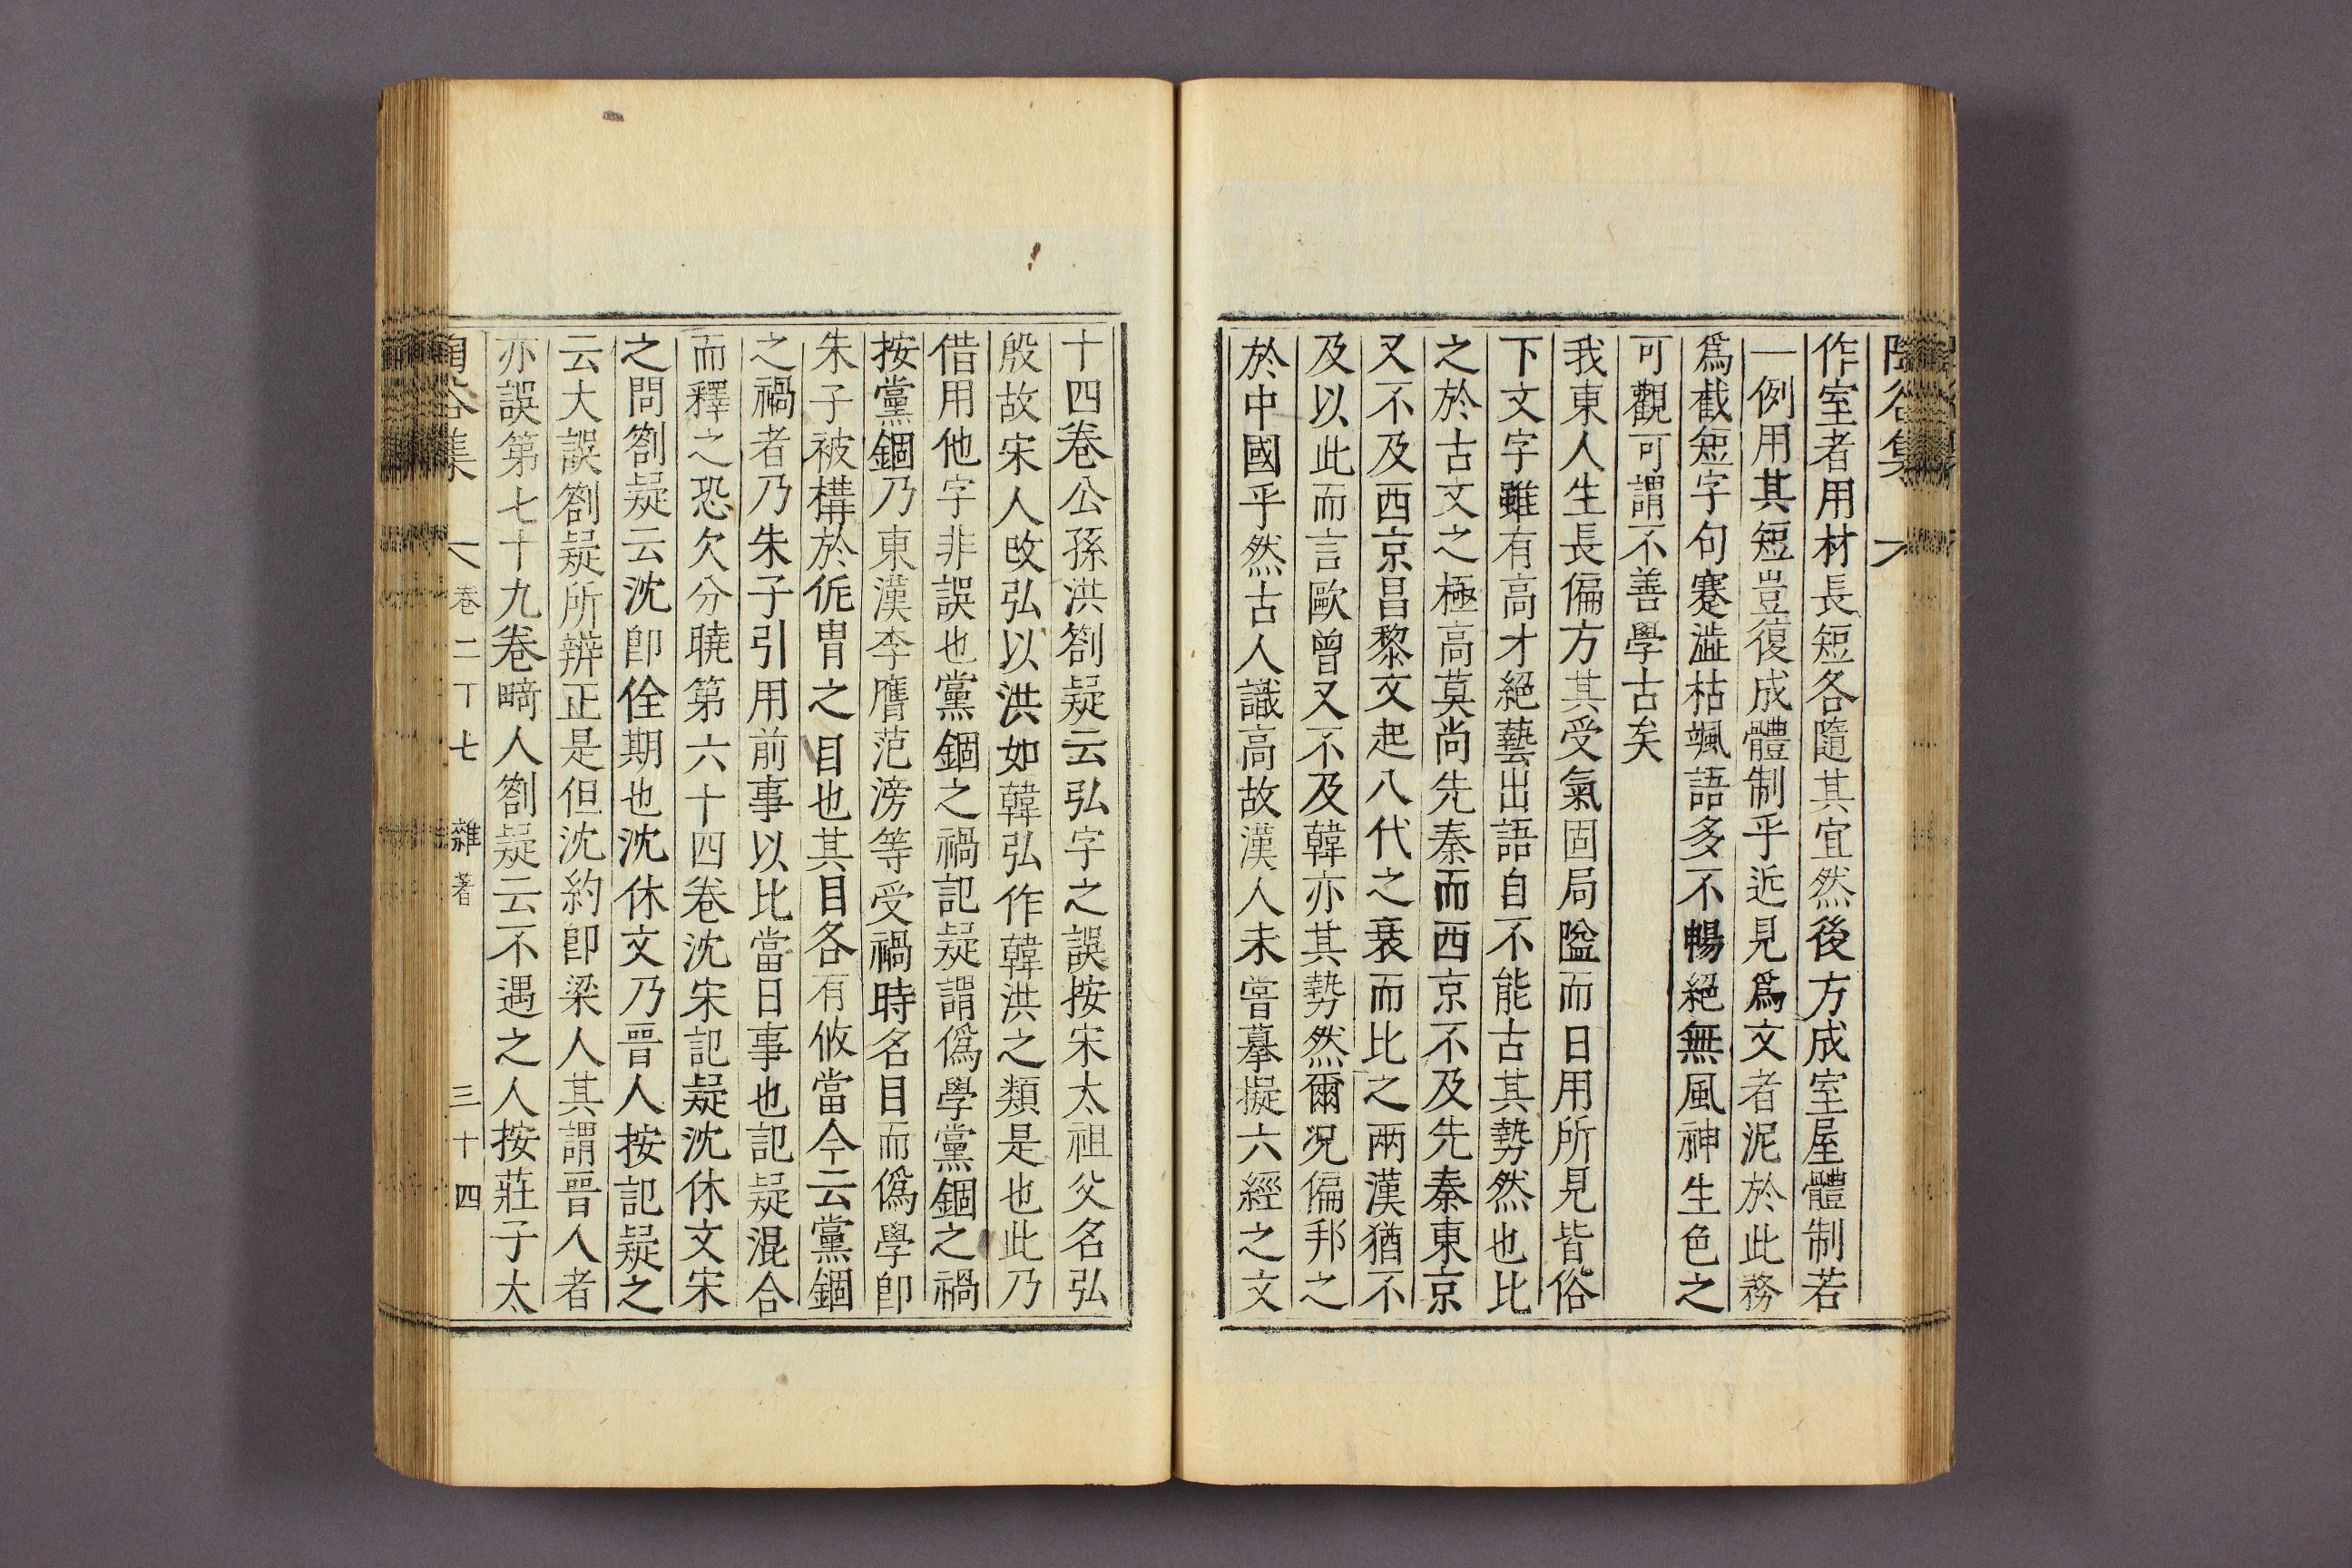 作室者用材長短各隨其宜然後方成室屋體制若
一例用其短豈復成體制乎近見爲文者泥於此務
爲截短字句蹇澁枯颯語多不暢絕無風神生色之
可觀可謂不善學古矣
我東人生長偏方其受氣固局隘而日用所見皆俗
下文字雖有高才絕藝出語自不能古其勢然也比
之於古文之極高莫尚先秦而西京不及先秦東京
又不及西京昌黎文起八代之衰而比之兩漢猶不
及以此而言歐曾又不及韓亦其勢然爾况偏邦之
於中國乎然古人識高故漢人未嘗摹擬六經之文
十四卷公孫洪箚疑云弘字之誤按宋太祖父名弘
殷故宋人改弘以洪如韓弘作韓洪之類是也此乃
借用他字非誤也黨錮之禍記疑謂僞學黨錮之禍
按黨錮乃東漢李膺范滂等受禍時名目而僞學卽
朱子被構於侂胄之目也其目各有攸當今云黨錮
之禍者乃朱子引用前事以比當日事也記疑混合
而釋之恐欠分曉第六十四卷沈宋記疑沈休文宋
之問箚疑云沈卽佺期也沈休文乃晋人按記疑之
云大誤箚疑所辨正是但沈約卽梁人其謂晋人者
亦誤第七十九卷畸人箚疑云不遇之人按莊子太
谷集 卷二十七 雜著 三十四